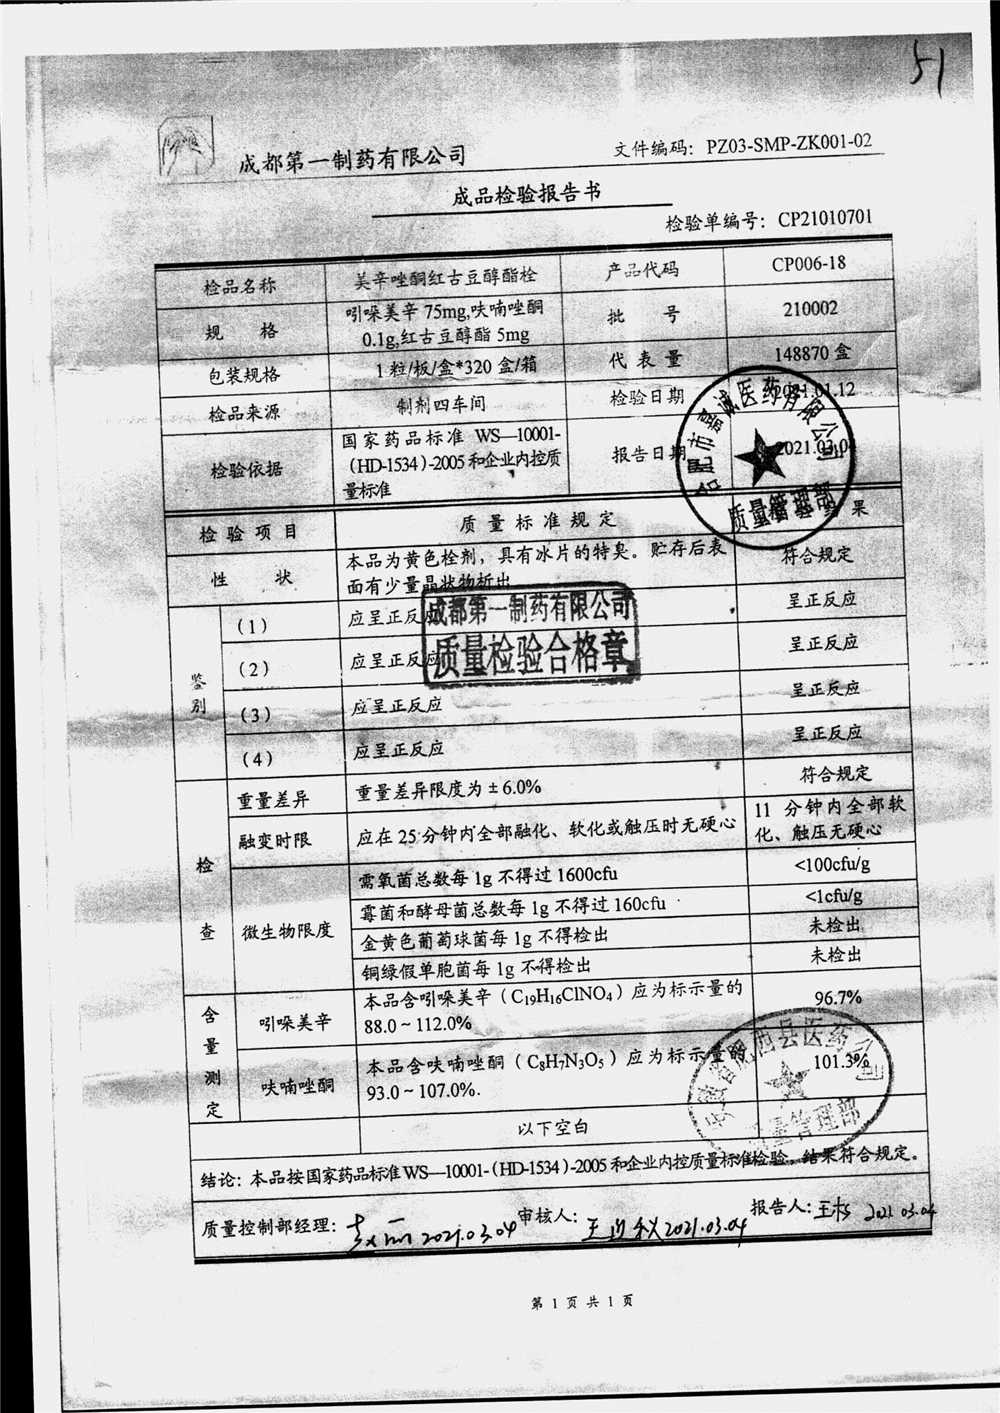 51
成都第一制药有限公司 文件编码：PZ03-SMP-ZK001-02
成品检验报告书
检验单编号：CP21010701
检品名称 美辛唑酮红古豆醇酯栓 产品代码 CP006-18
规 格 吲哚美辛 75mg,呋喃唑酮
0.1g,红古豆醇酯 5mg 批 号 210002
包装规格 1 粒/板/盒*320 盒/箱 代 表 量 148870 盒
检品来源 制剂四车间 检验日期 2021.01.12
检验依据 国家药品标准 WS—10001-
（HD-1534）-2005 和企业内控质
量标准 报告日期 2021.03.04
合肥市 诚医药有限公司
质量管理部
检 验 项 目 质 量 标 准 规 定 果
性 状 本品为黄色栓剂，具有冰片的特臭。贮存后表
面有少量晶状物析出 符合规定
成都第一制药有限公司
质量检验合格章
鉴别
（1） 应呈正反应 呈正反应
（2） 应呈正反应 呈正反应
（3） 应呈正反应 呈正反应
（4） 应呈正反应 呈正反应
检查
重量差异 重量差异限度为 ± 6.0% 符合规定
融变时限 应在 25 分钟内全部融化、软化或触压时无硬心 11 分钟内全部软
化、触压无硬心
微生物限度
需氧菌总数每 1g 不得过 1600cfu <100cfu/g
霉菌和酵母菌总数每 1g 不得过 160cfu <1cfu/g
金黄色葡萄球菌每 1g 不得检出 未检出
铜绿假单胞菌每 1g 不得检出 未检出
含量测定
吲哚美辛 本品含吲哚美辛（C₁₉H₁₆ClNO₄）应为标示量的
88.0～112.0% 96.7%
呋喃唑酮 本品含呋喃唑酮（C₈H₇N₃O₅）应为标示量的
93.0～107.0%. 101.3%
安徽省肥西县医药公司
质量管理部
以下空白
结论：本品按国家药品标准 WS—10001-（HD-1534）-2005 和企业内控质量标准检验，结果符合规定。
质量控制部经理： 2021.03.04 审核人： 2021.03.04 报告人： 2021.03.04
第 1 页 共 1 页